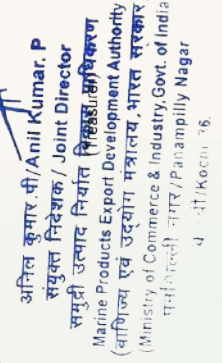 अनिल कुमार.पी/Anil Kumar. P
संयुक्त निदेशक / Joint Director
समुद्री उत्पाद निर्यात विकास प्राधिकरण
(Treasurer)
Marine Products Export Development Authority
(वाणिज्य एवं उद्योग मंत्रालय, भारत सरकार
(Ministry of Commerce & Industry, Govt. of India
नगर/Panampilly Nagar
/Kochi